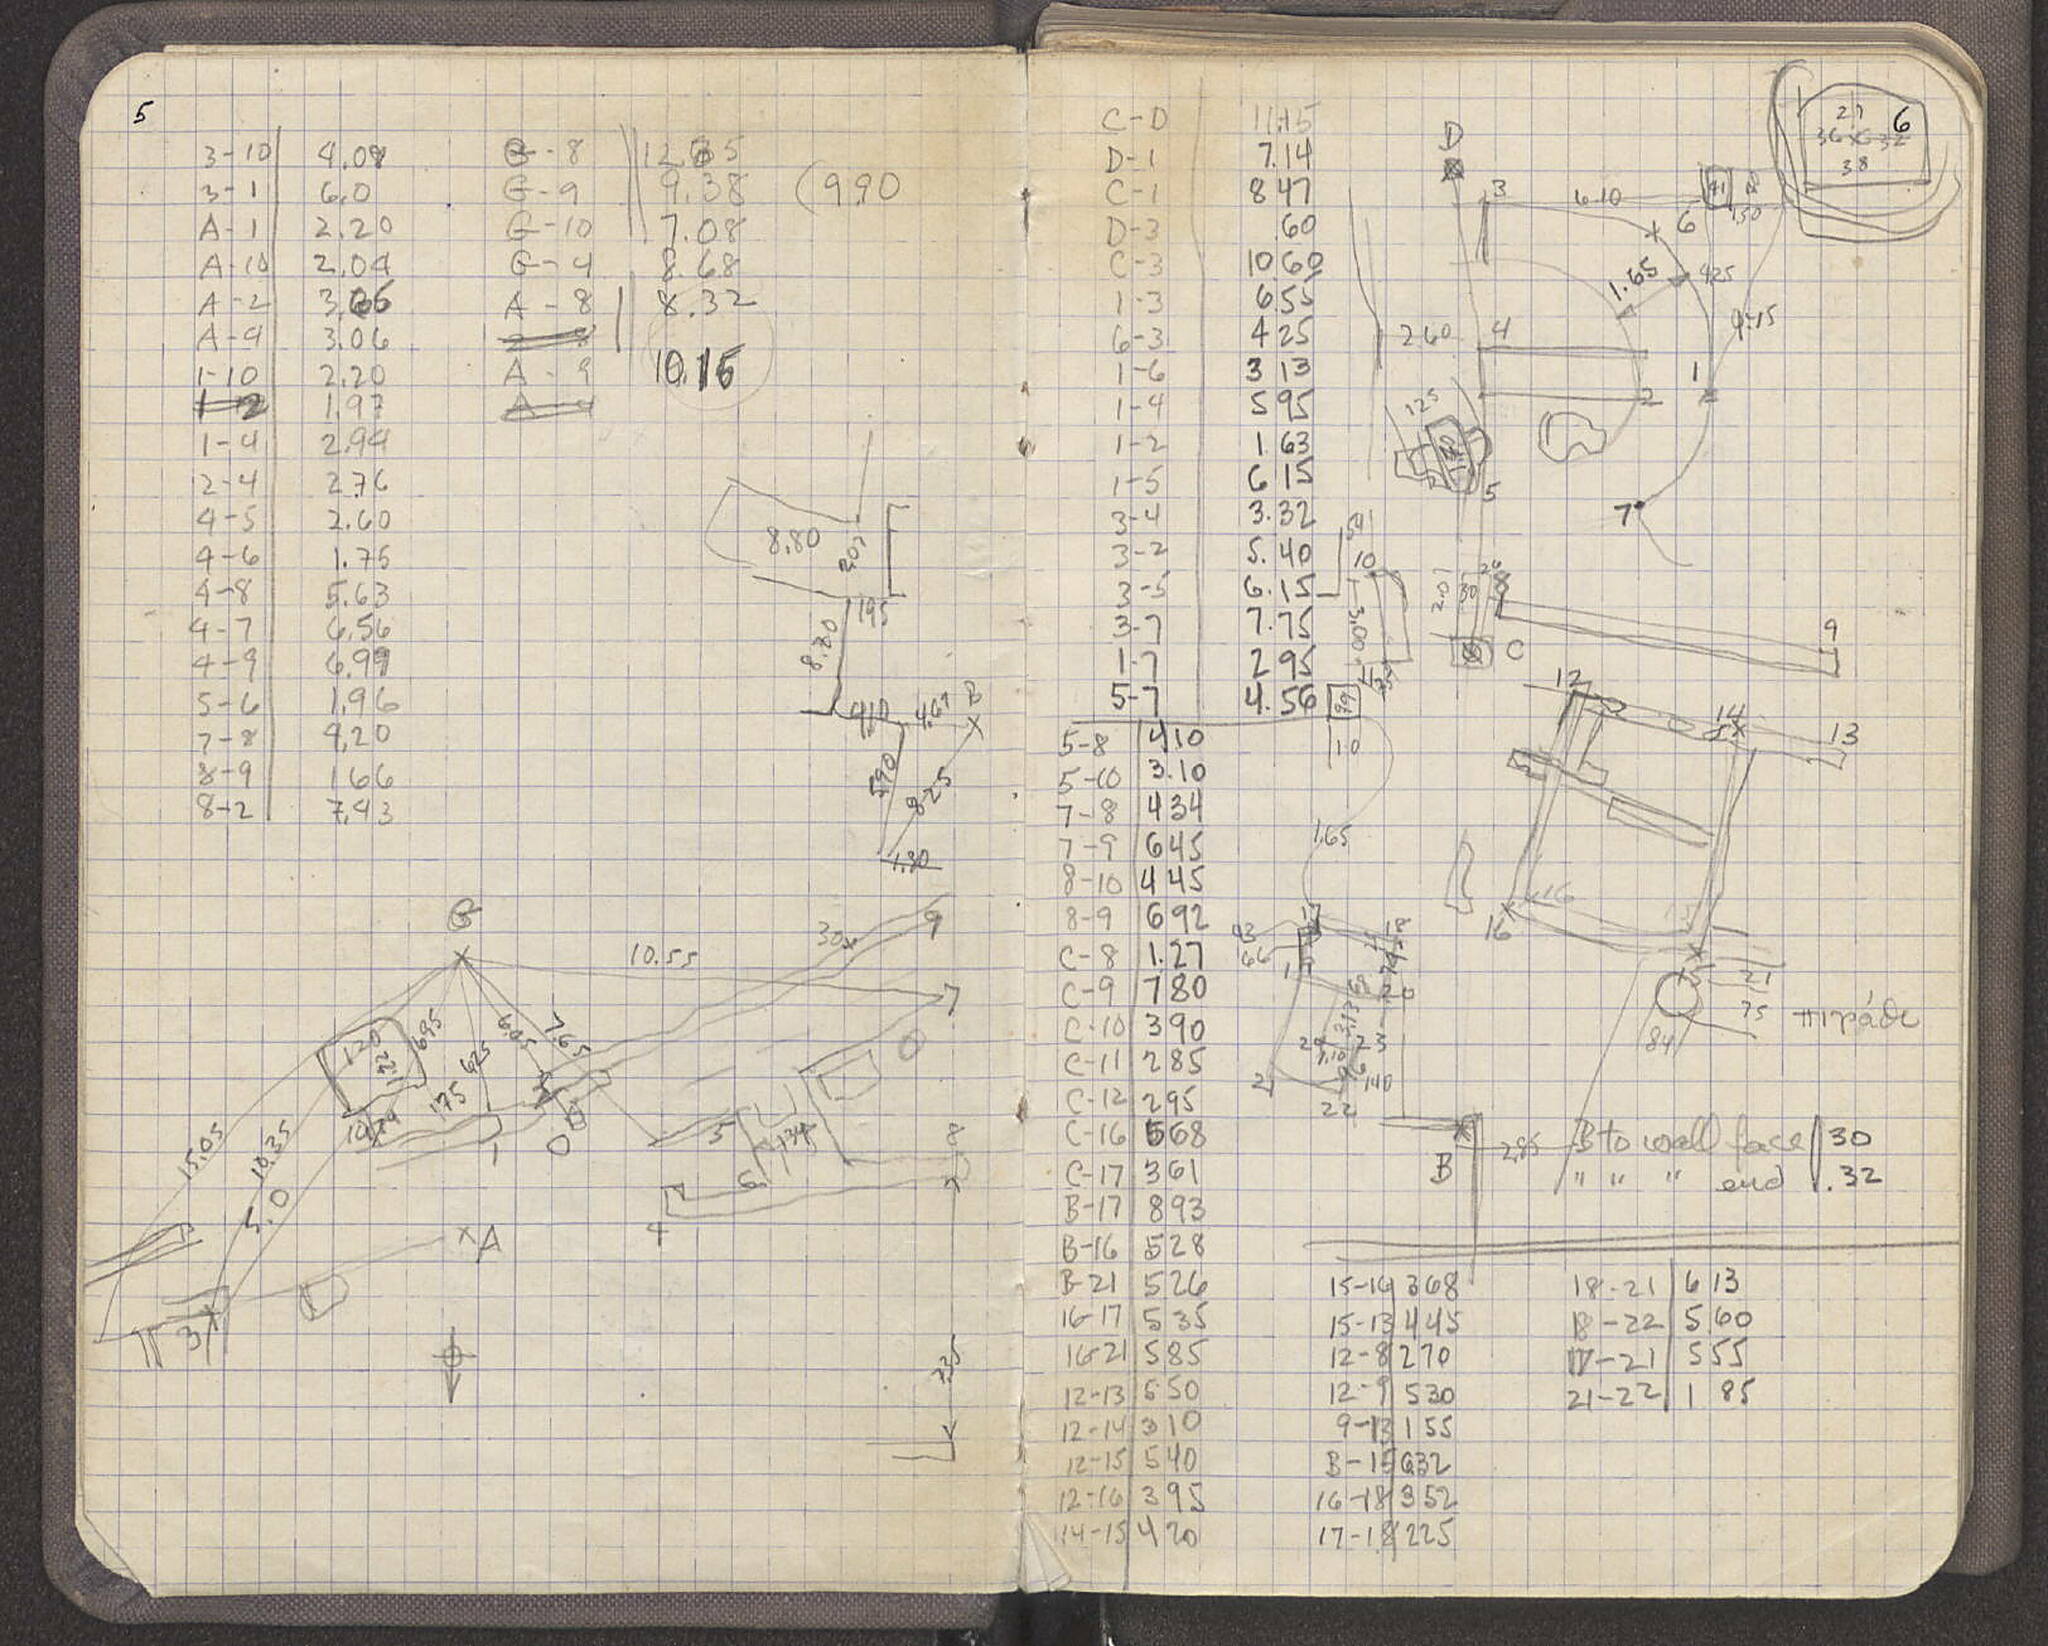 5
3-10 4.08
3-1 6.0
A-1 2.20
A-10 2.04
A-2
A-9 3.06
1-10 2.20
1-2 1.97
1-4 2.94
2-4 2.76
4-5 2.60
4-6 1.75
4-8 5.63
4-7 6.56
4-9 6.99
5-6 1.96
7-8 9.20
8-9 1 66
8-2 7.93
G-8
G-9 9.38 (9.90
G-10 7.08
G-4 8.68
A-8 8.32
A-9 10.15
8.80
2.07
195
8.80
910
4.67
B
590
8.25
1.80
G
10.55
30
9
7
120
122
695
625
6.05
7.65
175
15.05
10.35
5.0
10
1
2
5
134
6
8
A
4
3
235
6
27
38
C-D 11.15
D-1 7.14
C-1 8 47
D-3 .60
C-3 10 60
1-3 6.55
6-3 4 25
1-6 3 13
1-4 5 95
1-2 1 63
1-5 6 15
3-4 3.32
3-2 5.40
3-5 6.15
3-7 7.75
1-7 2 95
5-7 4.56
5-8 4 10
5-10 3.10
7-8 4 34
7-9 6 45
8-10 4 45
8-9 6 92
C-8 1.27
C-9 7 80
C-10 3 90
C-11 2 85
C-12 2 95
C-16 5 68
C-17 3 61
B-17 8 93
B-16 5 28
B-21 5 26
16-17 5 35
16-21 5 85
12-13 5 50
12-14 3 10
12-15 5 40
12-16 3 95
14-15 4 20
D
3
6 10
6
150
1.65
425
9.15
260
4
2
1
125
5
7
10
54
3.00
2.07
30
8
C
9
99
10
12
14
13
1.65
16
15
21
75
84
πιράθι
17
43
66
19
18
20
23
140
22
B
2.85
B to wall face 30
" " " end .32
15-16 3 68
15-13 4 45
12-8 2 70
12-9 5 30
9-13 1 55
B-15 6 32
16-18 3 52
17-18 2 25
18-21 6 13
18-22 5 60
17-21 5 55
21-22 1 85